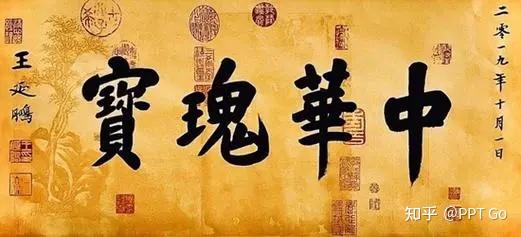 二零一九年十月一日
中華瑰寶
王延鵬
知乎 @PPT Go